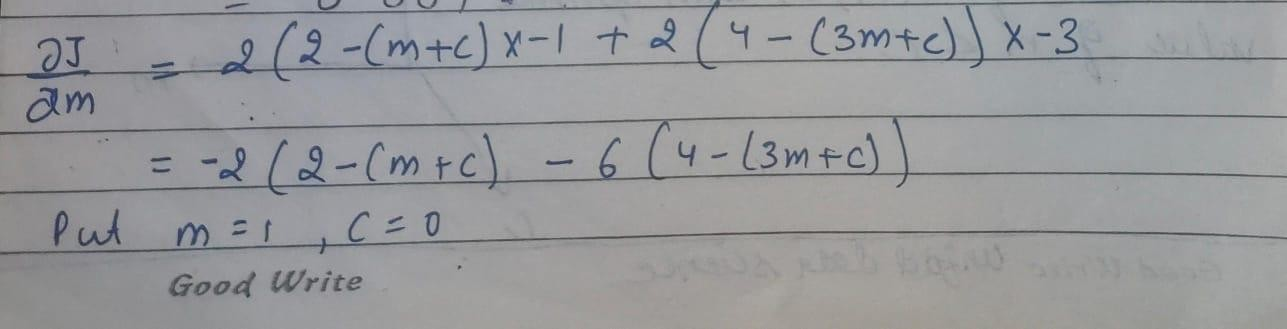 ∂J/∂m = 2(2-(m+c) x-1 + 2(4-(3m+c)) x-3
= -2(2-(m+c) - 6(4-(3m+c))
Put m=1, C=0
Good Write